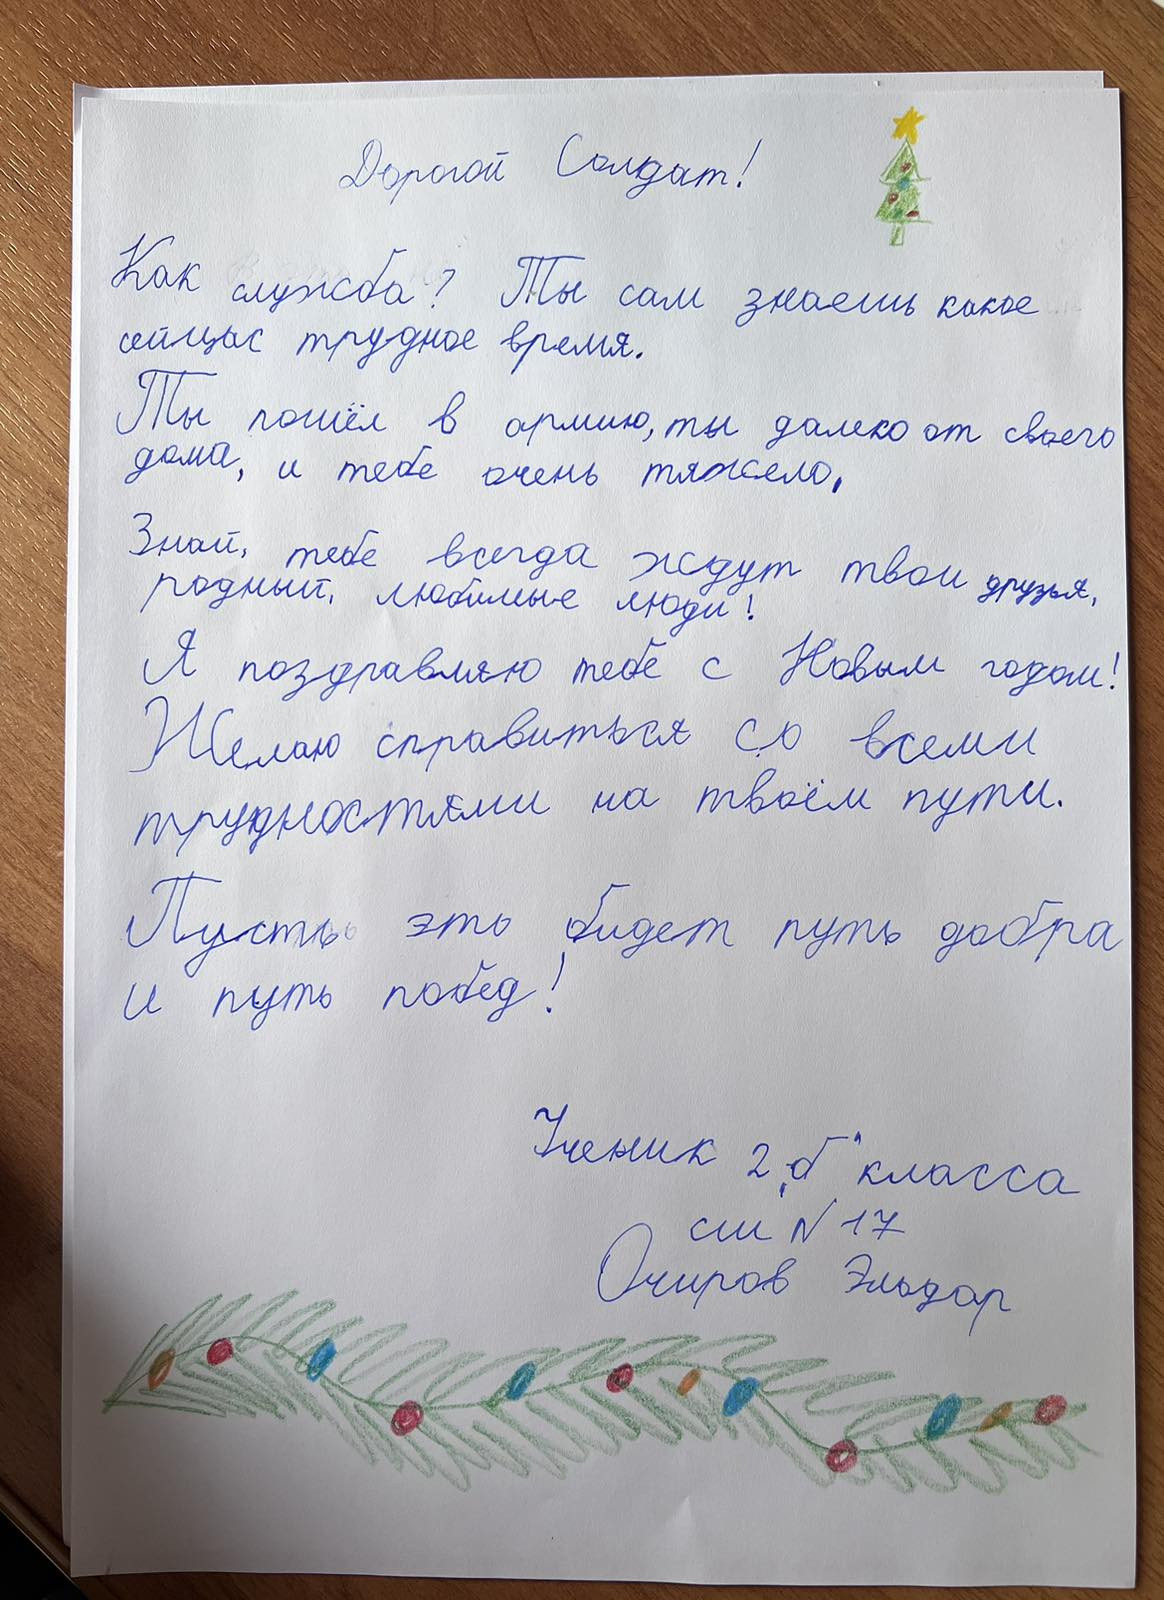 Дорогой Солдат!
Как служба? Ты сам знаешь какое
сейщас трудное время.
Ты пошёл в армию, ты далеко от своего
дома, и тебе очень тяжело.
Знай, тебе всегда ждут твои друзья,
родный, любимые люди!
Я поздравляю тебе с Новым годом!
Желаю справиться со всеми
трудностями на твоём пути.
Пусть это бидет путь добра
и путь побед!
Ученик 2 „б" класса
сш № 17
Очиров Эльдар